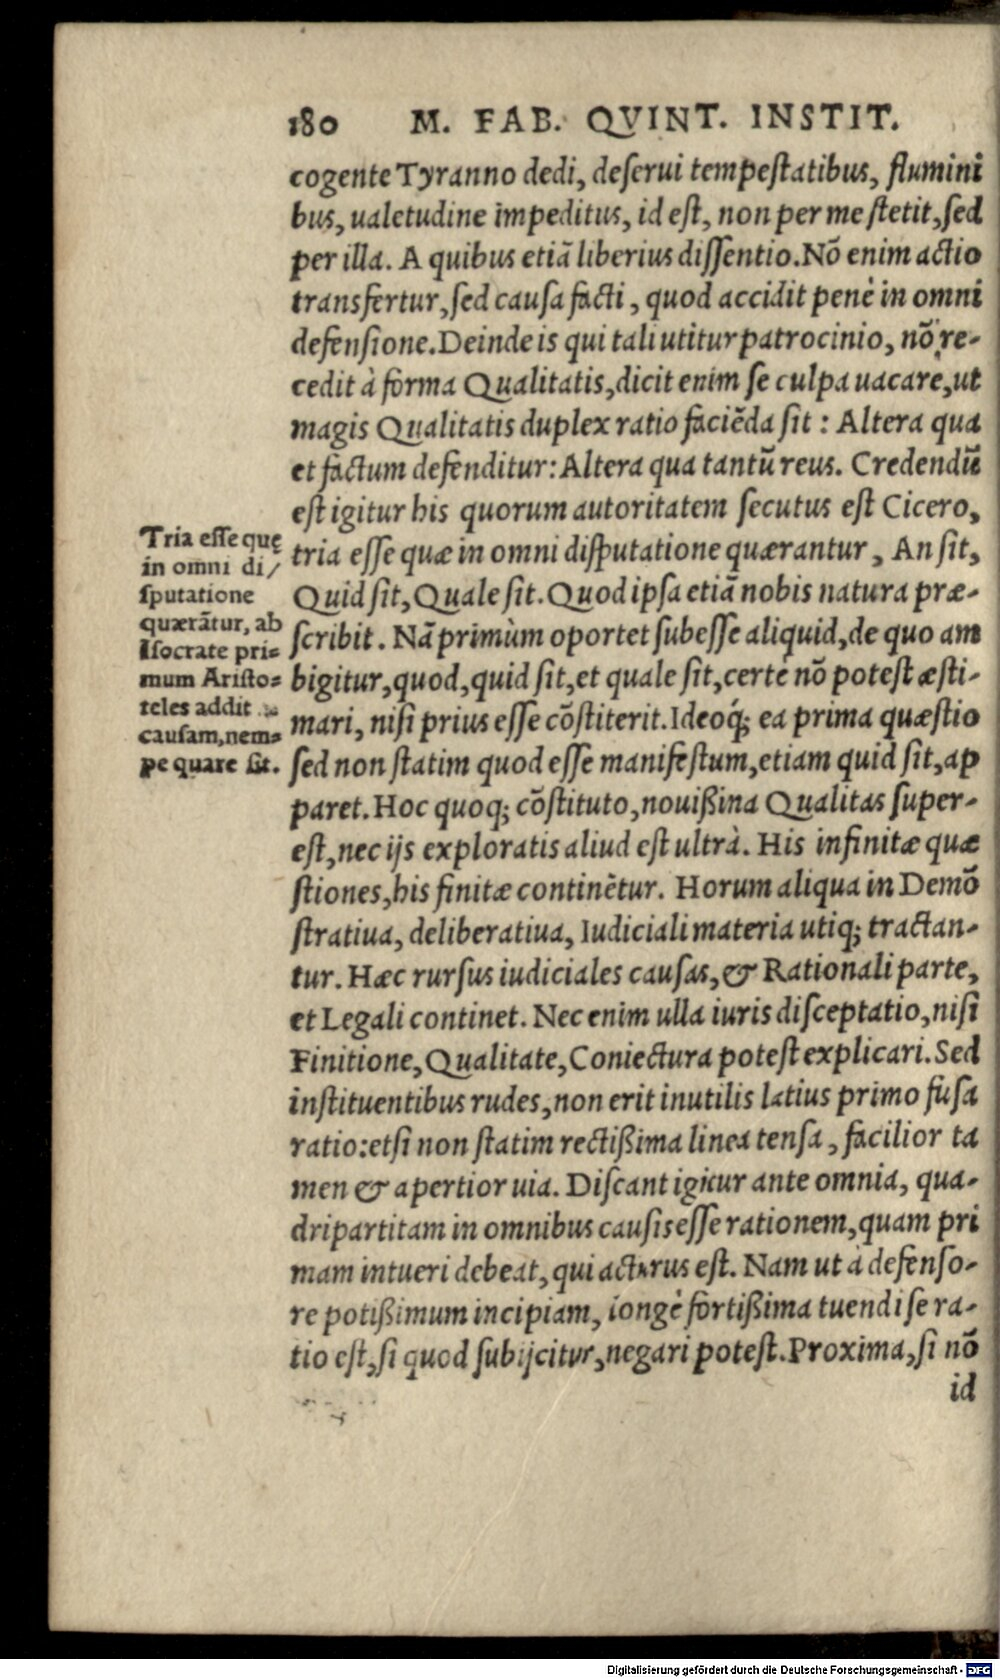 180 M. FAB. QVINT. INSTIT.
cogente Tyranno dedi, deserui tempestatibus, flumini
bus, ualetudine impeditus, id est, non per me stetit, sed
per illa. A quibus etiā liberius dissentio. Nō enim actio
transfertur, sed causa facti, quod accidit penè in omni
defensione. Deinde is qui tali utitur patrocinio, nō re-
cedit à forma Qualitatis, dicit enim se culpa uacare, ut
magis Qualitatis duplex ratio faciēda sit: Altera qua
et factum defenditur: Altera qua tantū reus. Credendū
est igitur his quorum autoritatem secutus est Cicero,
tria esse quæ in omni disputatione quærantur, An sit,
Quid sit, Quale sit. Quod ipsa etiā nobis natura præ-
scribit. Nā primùm oportet subesse aliquid, de quo am
bigitur, quod, quid sit, et quale sit, certè nō potest æsti-
mari, nisi prius esse cōstiterit. Ideoq́; ea prima quæstio
sed non statim quod esse manifestum, etiam quid sit, ap
paret. Hoc quoq; cōstituto, nouißina Qualitas super-
est, nec ijs exploratis aliud est ultrà. His infinitæ quæ
stiones, his finitæ continētur. Horum aliqua in Demō
stratiua, deliberatiua, Iudiciali materia utiq; tractan-
tur. Hæc rursus iudiciales causas, & Rationali parte,
et Legali continet. Nec enim ulla iuris disceptatio, nisi
Finitione, Qualitate, Coniectura potest explicari. Sed
instituentibus rudes, non erit inutilis latius primo fusa
ratio: etsi non statim rectißima linea tensa, facilior ta
men & apertior uia. Discant igitur ante omnia, qua-
dripartitam in omnibus causis esse rationem, quam pri
mam intueri debeat, qui acturus est. Nam ut à defenso-
re potißimum incipiam, longè fortißima tuendi se ra-
tio est, si quod subijcitur, negari potest. Proxima, si nō
id
Tria esse quę
in omni di-
sputatione
quærātur, ab
Isocrate pri-
mum Aristo-
teles addit
causam, nem-
pe quare sit.
Digitalisierung gefördert durch die Deutsche Forschungsgemeinschaft - DFG